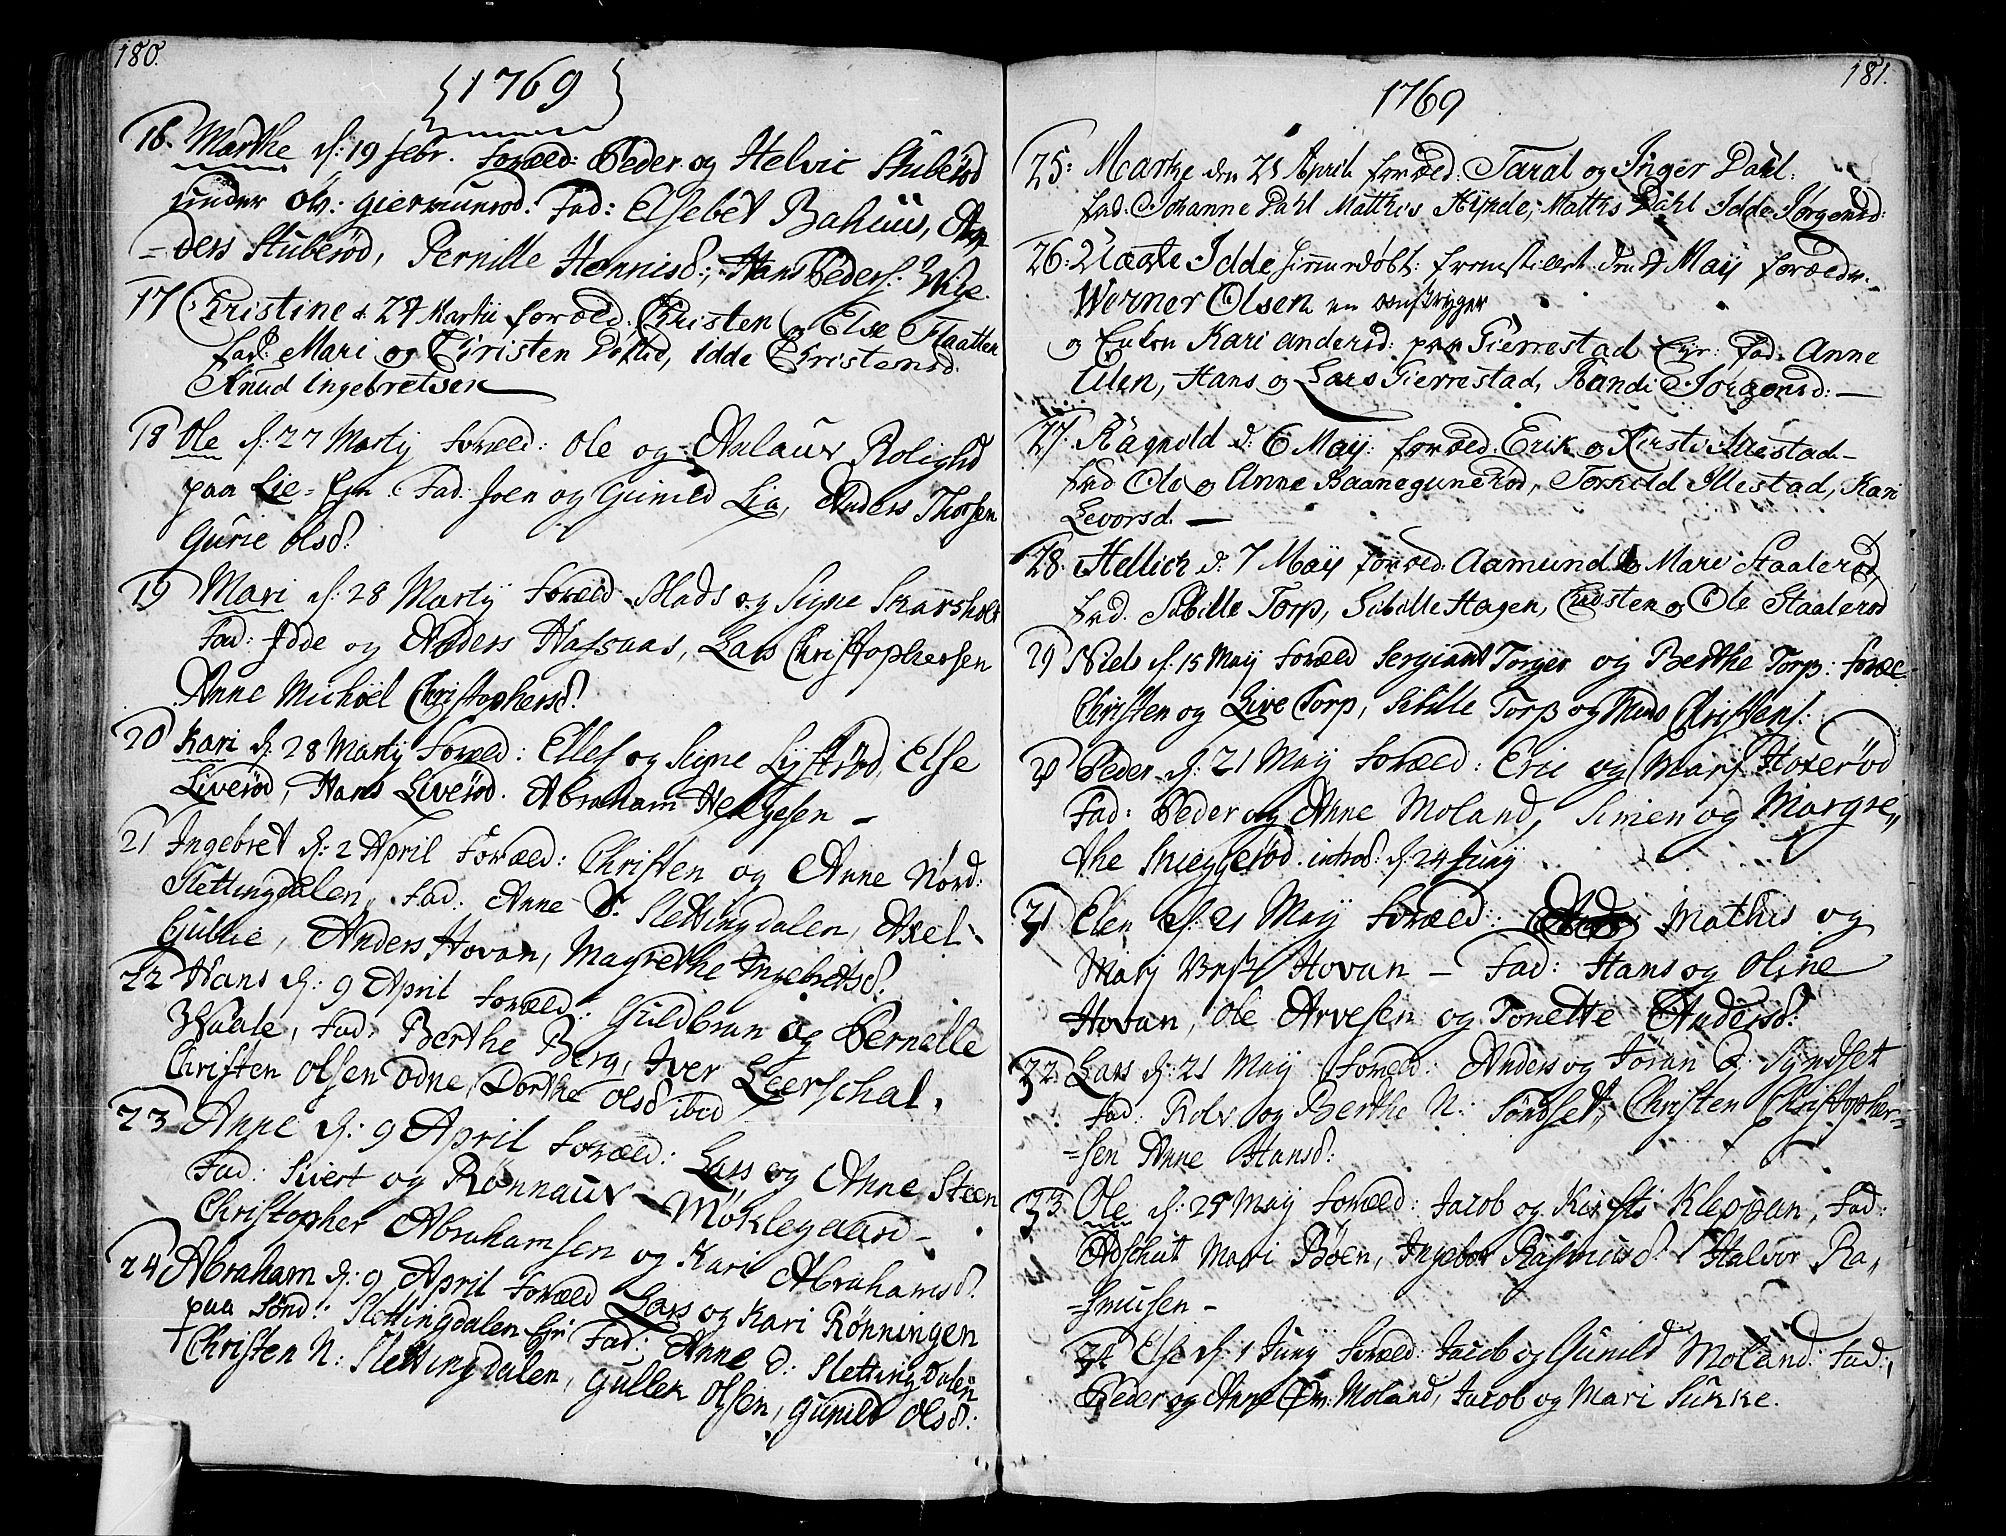 180.
{1769}
16. Marthe d: 19 febr. foræld: Peder og Helvic Stuberød
under øv: giermunrød. Fad: Elsebet Bahuus, An,
=ders Stuberød, Pernille Hennisd:, Hans Peders:
17 Christine d. 27 Martii foræld. Christen og Else Flaatten
fad: Mari og Christen idde Christensd.
Knud ingebretsen
18 Ole d: 27 Martij foræld: Ole og Aslaug Rolighed
paa Lie=Eyr. Fad: Joen og Gunild Lia, Anders Thorsen
Gurie olsd:
19 Mari d: 28 Martij foræld Mads og Signe Skarsholt
Fad: Idde og Anders Hafsaas, Lars Christophersen
Anne Michöel Christophersd:
20 Kari d: 28 Martij foræld: Ellef og Signe Lystrød, Else
Liverød, Hans Liverød. Abraham Helgesen -
21 Ingebret d: 2 April foræld: Christen og Anne Nord:
Slettingdalen, fad: Anne S: Slettingdalen, Axel
Gullie, Anders Hovan, Magrethe Ingebretsd:
22 Hans d: 9 April foræld: Guldbran og Pernille
Waale, fad: Berthe Berg, Iver Leerschal,
Christen Olsen odne, Dorthe olsd ibid
23 Anne d: 9 April foræld: Lars og Anne Steen
Fad: Sivert og Rønnaug Møklegaard -
Christopher Abrahamsen og Kari Abrahamsd:
24 Abraham d: 9 April foræld Lars og Kari Rønningen
paa Sønd: Slettingdalen Eyr: Fad: Anne S: Slettingdalen
† Christen N: Slettingdalen, Gullek Olsen, Gunild Olsd:
181.
1769
25: Marthe den 21 April foræld: Taral og Inger Dahl.
fad. Johanne Dahl Matthis Hynde, Mathis Dahl Idde Jørgensd:
26: Uægte Idde hiemmedøbt: fremstillert: den 4 Maij forældr.
Werner Olsen en
og Enken Kari andersd: paa Fierrestad Eyr: fad: Anne
Eilen, Hans og Lars Fierrestad, Randi Jørgensd: —
27. Ragnild d: 6 Maij: foræld: Erik og Kirsti Illestad -
fad Ole og Anne Baanegunerød, Torkild Illestad, Kari
Levorsd. —
28. Hellick d. 7 Maij foræld. Aamund og Mari Staalerød,
fad. Sibille Torp, Sibille Hagen, Christen og Ole Staalerød
29 Niels d: 15 Maij foræld Sergiant Torger og Berthe Torp: foræl:
Christen og Live Torp, Sibille Torp og Mads Christens:
30 Peder d: 21 Maij foræld: Eric og Mari Hoxerød
Fad: Peder og Anne Moland, Simen og Margre,,
the Snieggerød. introd: d: 24 Junij
31 Elen d: 21 Maij foræld: Mathis og
Mari Hovan - Fad: Hans og Oline
Hovan, Ole Arvesen og Tonette Andersd:
32 Lars d: 21 Maij foræld: Anders og Jøran S: Syndset
Fad: Rolv og Berthe N: Søndset, Christen Christopher-
=sen Anne Hansd:
33 Ole d: 25 Maij foræld: Jacob og Kirsti Kleppan, Fad:
Mari Bøen, Ingebor Rasmusd: Halvor Ra,,
=smusen -
34 Else d: 1 Junij foræld: Jacob og Gunild Moland: Fad:,
Peder og Anne Moland, Jacob og Mari Sukke.